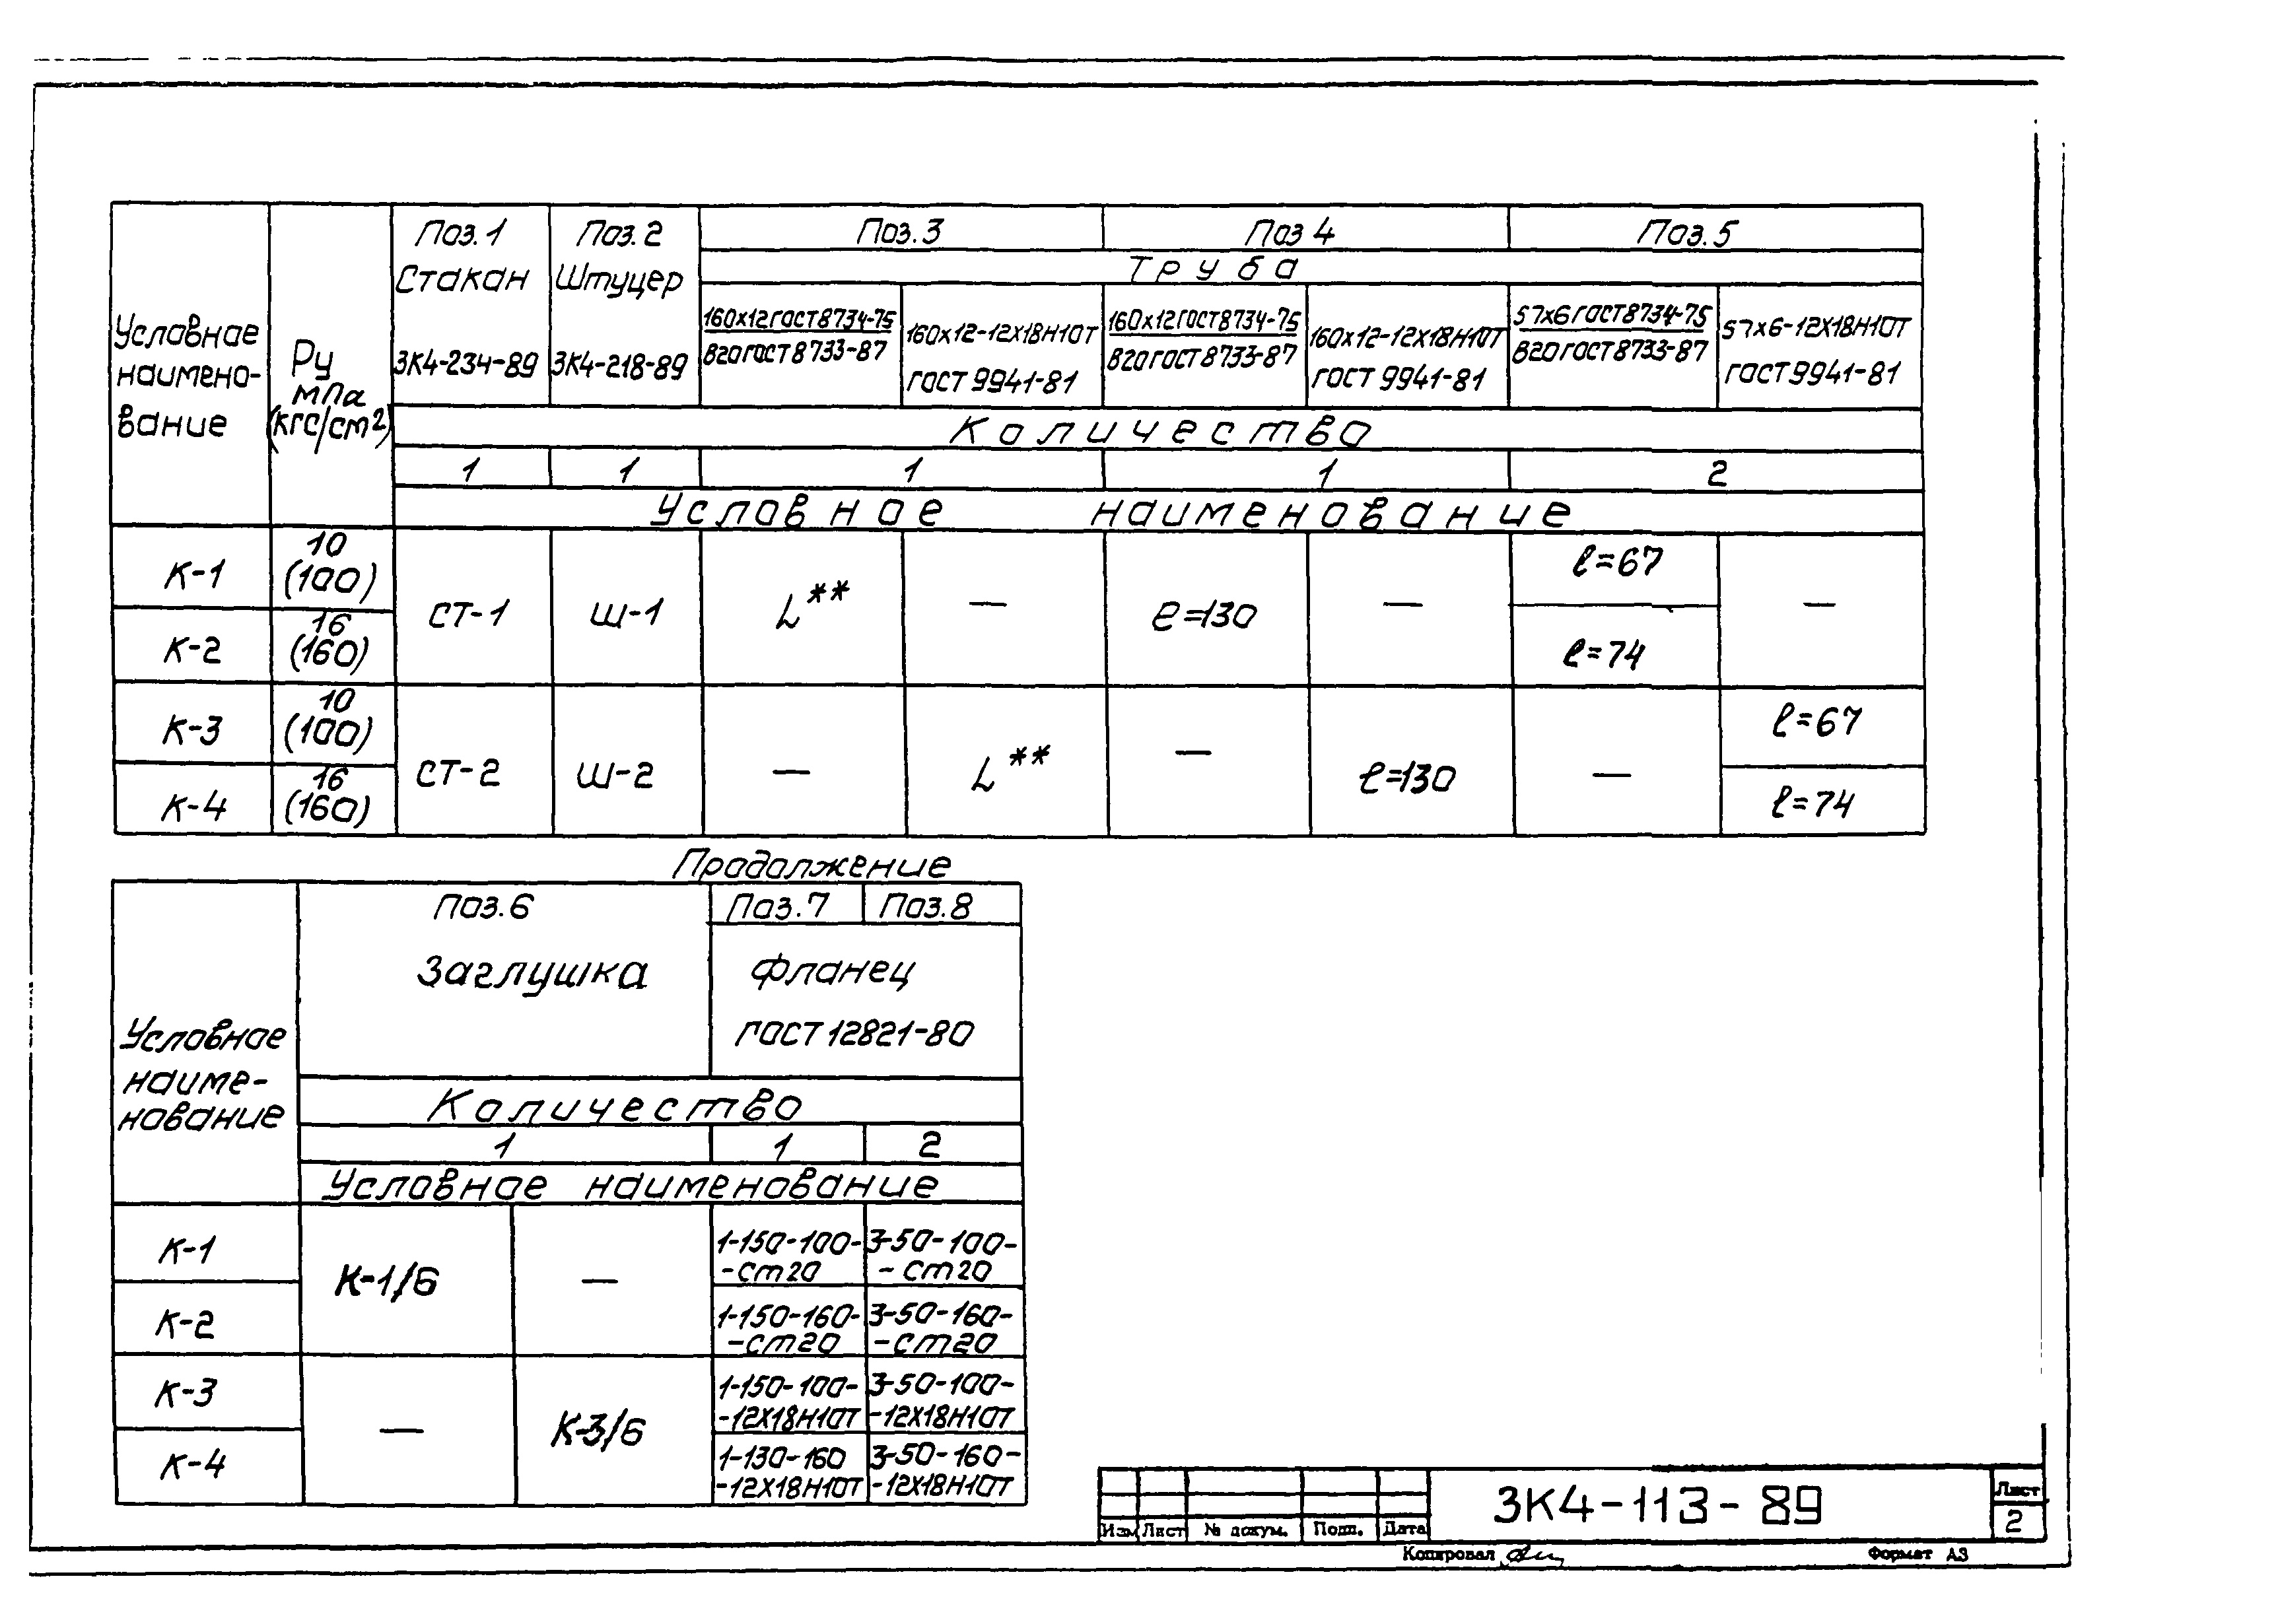 Поз.1 Поз.2 Поз.3 Поз 4 Поз.5
Стакан Штуцер Труба
Условное наимено-вание
Ру МПа (кгс/см2)
ЗК4-234-89 ЗК4-218-89
160х12 ГОСТ 8734-75 160х12-12Х18Н10Т 160х12 ГОСТ 8734-75 160х12-12Х18Н10Т 57х6 ГОСТ 8734-75 57х6-12Х18Н10Т
В20 ГОСТ 8733-87 ГОСТ 9941-81 В20 ГОСТ 8733-87 ГОСТ 9941-81 В20 ГОСТ 8733-87 ГОСТ 9941-81
Количество
1 1 1 1 2
Условное наименование
К-1 10 (100) СТ-1 Ш-1 L** — ℓ=130 — ℓ=67 —
К-2 16 (160) ℓ=74
К-3 10 (100) СТ-2 Ш-2 — L** — ℓ=130 — ℓ=67
К-4 16 (160) ℓ=74
Продолжение
Поз.6 Поз.7 Поз.8
Заглушка Фланец
ГОСТ 12821-80
Условное
наиме-
нование
Количество
1 1 2
Условное наименование
К-1 К-1/6 — 1-150-100- 3-50-100-
-ст20 -ст20
К-2 1-150-160- 3-50-160-
-ст20 -ст20
К-3 — К-3/6 1-150-100- 3-50-100-
-12Х18Н10Т -12Х18Н10Т
К-4 1-130-160 3-50-160-
-12Х18Н10Т -12Х18Н10Т
ЗК4-113-89
Лист
2
Изм Лист № докум. Подп. Дата
Копировал Формат А3